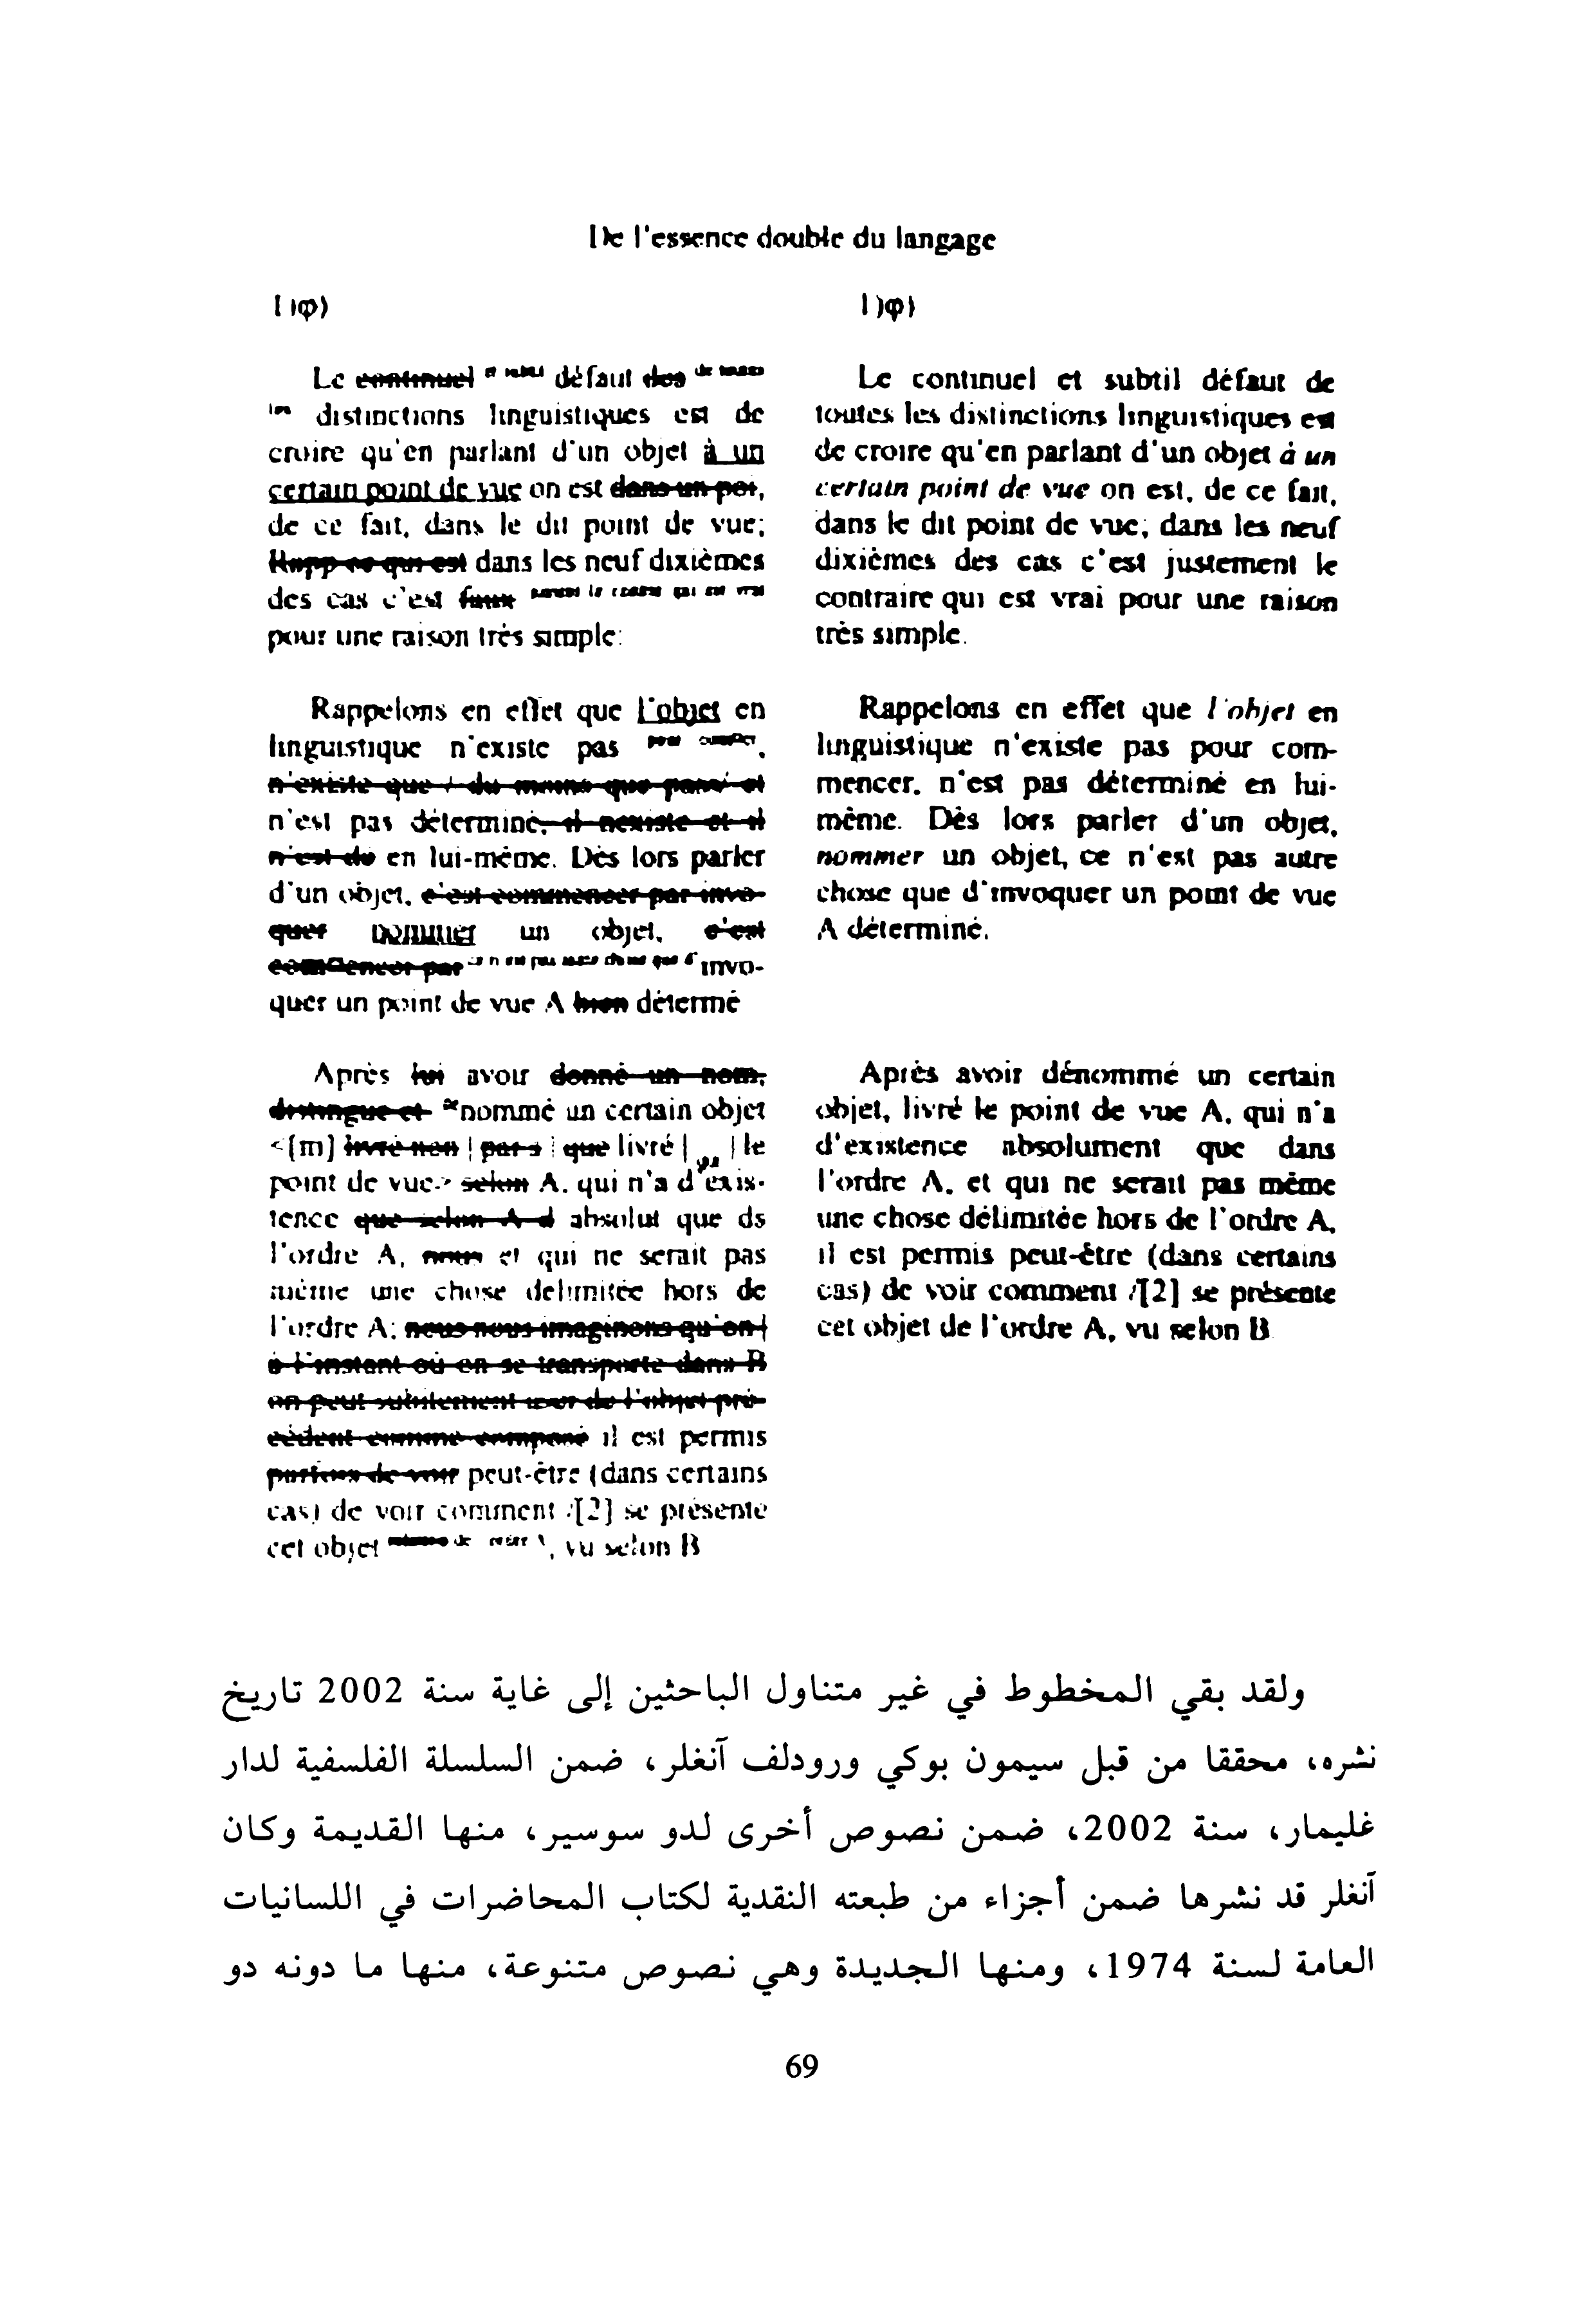 De l'essence double du langage
1)φ)
Le continuel et subtil défaut des de toutes
les distinctions linguistiques est de
croire qu'en parlant d'un objet à un
certain point de vue on est dans un poi,
de ce fait, dans le dit point de vue;
Rapp ce qui est dans les neuf dixièmes
des cas c'est faux justement le contraire qui est vrai
pour une raison très simple:
Rappelons en effet que l'objet en
linguistique n'existe pas pour
n'existe que / du moins que
n'est pas déterminé, il nexiste et il
n'est de en lui-même. Dès lors parler
d'un objet, c'est commencer par invo-
quer nommer un objet, c'est
commencer par ce n'est pas autre chose que d' invo-
quer un point de vue A bien détermé
Après lui avoir donné un nom,
distingué et nommé un certain objet
<[m] livré non | par s | que livré | | le
point de vue> selon A, qui n'a d'exis-
tence que selon A d absolut que ds
l'ordre A, nous et qui ne serait pas
même une chose délimitée hors de
l'ordre A; nous nous imaginons qu'on |
à l'instant où on se transporte dans B
on peut subitement user de l'objet pré-
cédent comme composé il est permis
parfois de voir peut-être (dans certains
cas) de voir comment /[2] se présente
cet objet de ordre A, vu selon B
1)φ)
Le continuel et subtil défaut de
toutes les distinctions linguistiques est
de croire qu'en parlant d'un objet à un
certain point de vue on est, de ce fait,
dans le dit point de vue; dans les neuf
dixièmes des cas c'est justement le
contraire qui est vrai pour une raison
très simple.
Rappelons en effet que l'objet en
linguistique n'existe pas pour com-
mencer, n'est pas déterminé en lui-
même. Dès lors parler d'un objet,
nommer un objet, ce n'est pas autre
chose que d'invoquer un point de vue
A déterminé.
Après avoir dénommé un certain
objet, livré le point de vue A, qui n'a
d'existence absolument que dans
l'ordre A, et qui ne serait pas même
une chose délimitée hors de l'ordre A,
il est permis peut-être (dans certains
cas) de voir comment /[2] se présente
cet objet de l'ordre A, vu selon B
ولقد بقي المخطوط في غير متناول الباحثين إلى غاية سنة 2002 تاريخ
نشره، محققا من قبل سيمون بوكي ورودلف آنغلر، ضمن السلسلة الفلسفية لدار
غليمار، سنة 2002، ضمن نصوص أخرى لدو سوسير، منها القديمة وكان
آنغلر قد نشرها ضمن أجزاء من طبعته النقدية لكتاب المحاضرات في اللسانيات
العامة لسنة 1974، ومنها الجديدة وهي نصوص متنوعة، منها ما دونه دو
69